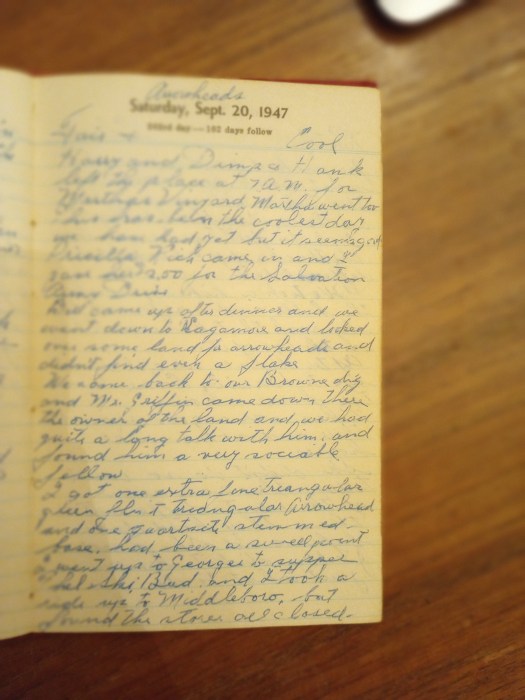 Arrowheads
Saturday, Sept. 20, 1947
263rd day—102 days follow
Fair + Cool
Harry and Dimp + Hank
left my place at 7 A.M. for
Marthas Vinyard, Martha went too
this has been the coolest day
we have had yet but it seems good
Priscilla came in and I
gave her 2.00 for the Salvation
Army Drive
Bud came up after dinner and we
went down to Sagamore and looked
over some land for arrowheads and
didn't find even a flake
We came back to our Browne dig
and Mr. Griffin came down there
the owner of the land and we had
quite a long talk with him, and
found him a very sociable
fellow
I got one extra fine triangular
green flint triangular Arrowhead
and one quartzite stemmed
base, had been a swell point
I went up to Georges to supper
Bud and I took a
ride up to Middleboro, but
found the stores all closed.